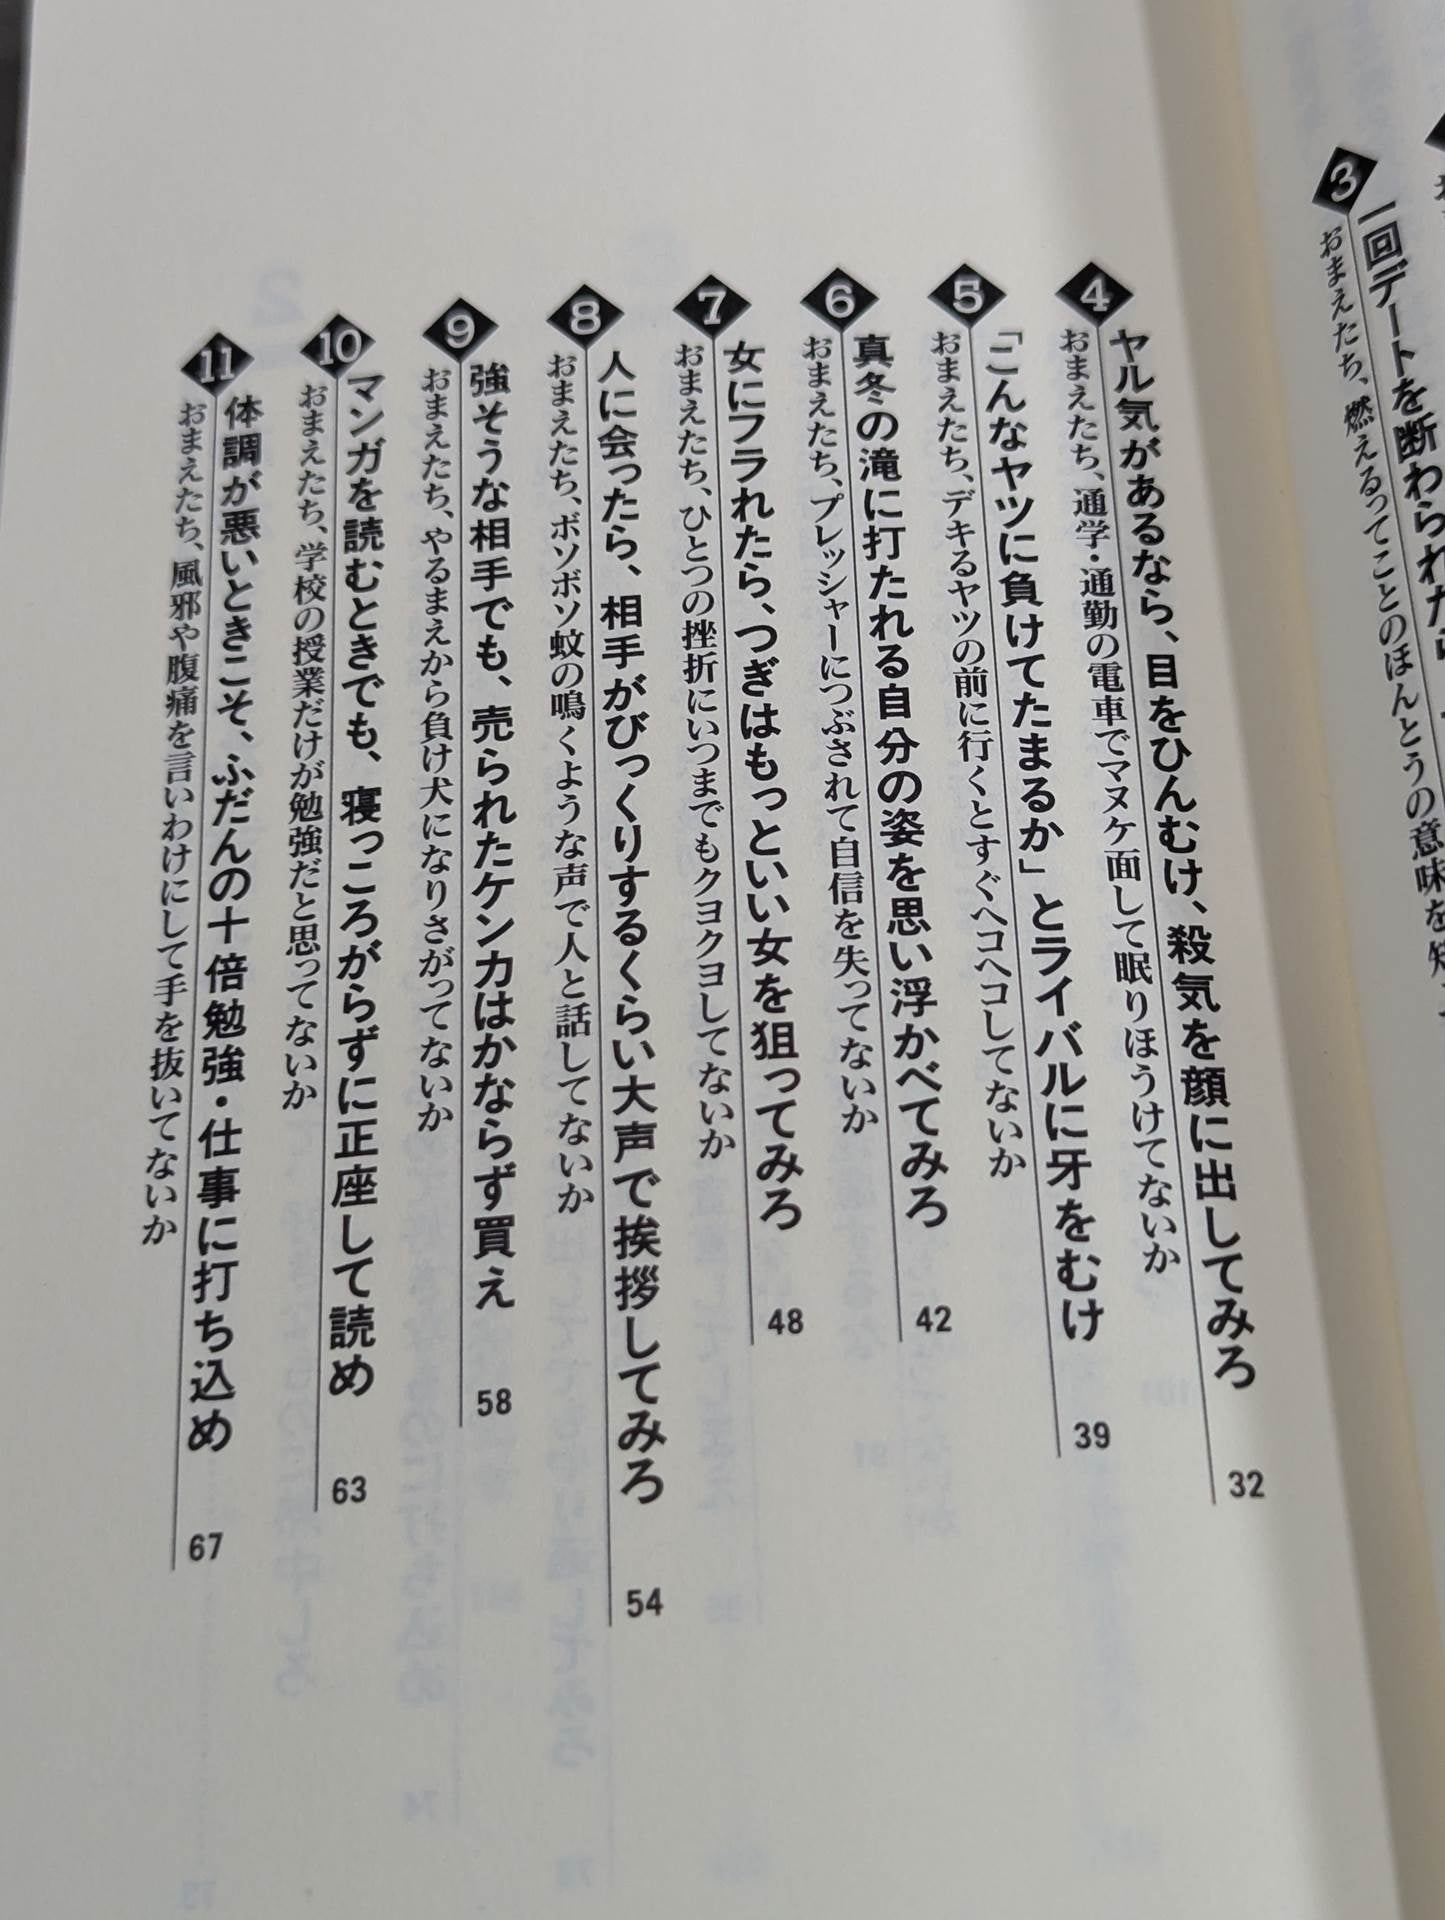 3
一回デートを断わられたら
おまえたち、燃えるってことのほんとうの意味を知
4
ヤル気があるなら、目をひんむけ、殺気を顔に出してみろ 32
おまえたち、通学・通勤の電車でマヌケ面して眠りほうけてないか
5
「こんなヤツに負けてたまるか」とライバルに牙をむけ 39
おまえたち、デキるヤツの前に行くとすぐヘコヘコしてないか
6
真冬の滝に打たれる自分の姿を思い浮かべてみろ 42
おまえたち、プレッシャーにつぶされて自信を失ってないか
7
女にフラれたら、つぎはもっといい女を狙ってみろ 48
おまえたち、ひとつの挫折にいつまでもクヨクヨしてないか
8
人に会ったら、相手がびっくりするくらい大声で挨拶してみろ 54
おまえたち、ボソボソ蚊の鳴くような声で人と話してないか
9
強そうな相手でも、売られたケンカはかならず買え 58
おまえたち、やるまえから負け犬になりさがってないか
10
マンガを読むときでも、寝っころがらずに正座して読め 63
おまえたち、学校の授業だけが勉強だと思ってないか
11
体調が悪いときこそ、ふだんの十倍勉強・仕事に打ち込め 67
おまえたち、風邪や腹痛を言いわけにして手を抜いてないか